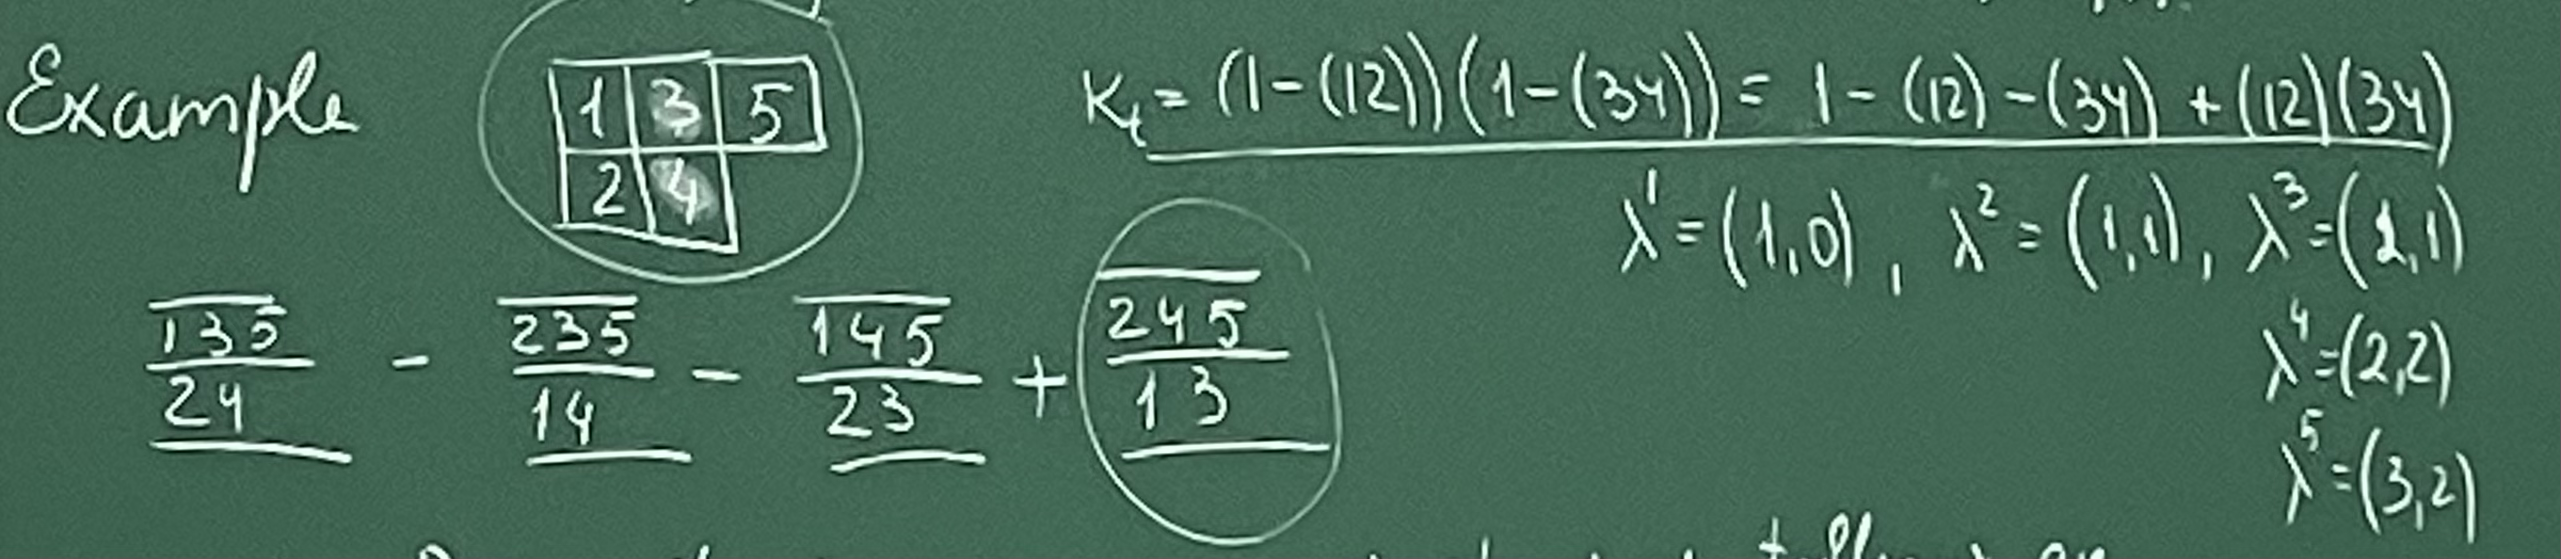 Example
1 3 5
2 4
κ_t = (1-(12))(1-(34)) = 1-(12)-(34)+(12)(34)
λ^1=(1,0), λ^2=(1,1), λ^3=(2,1)
λ^4=(2,2)
λ^5=(3,2)
135 - 235 - 145 + 245
24 14 23 13